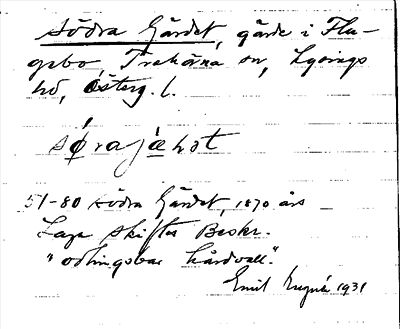 Södra Gärdet, gärde i Flu-
gebo, Trehörna sn, Lysings
hd, Österg. l.
sǿrajæḥət
51-80 södra Gärdet, 1870 års
Laga skiftes Beskr.
"odlingsbar hårdvall".
Emil 1931